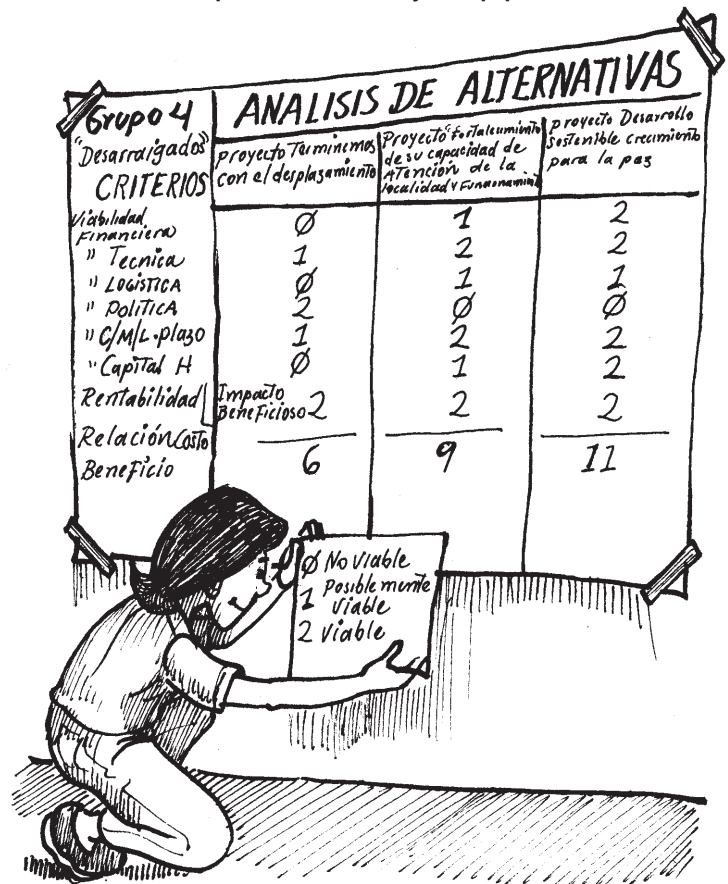 ANALISIS DE ALTERNATIVAS
Grupo 4
"Desarraigados"
CRITERIOS
Proyecto Terminemos
con el desplazamiento
Proyecto "Fortalecimiento
de su capacidad de
Atención de la
localidad y Funcionamiento
Proyecto Desarrollo
Sostenible crecimiento
para la paz
Viabilidad
Financiera Ø 1 2
" Tecnica 1 2 2
" LOGISTICA Ø 1 1
" POLITICA 2 Ø Ø
" C/M/L. plazo 1 2 2
" Capital H Ø 1 2
Rentabilidad Impacto
Beneficioso 2 2 2
Relación Costo
Beneficio 6 9 11
Ø No Viable
1 Posiblemente
Viable
2 Viable